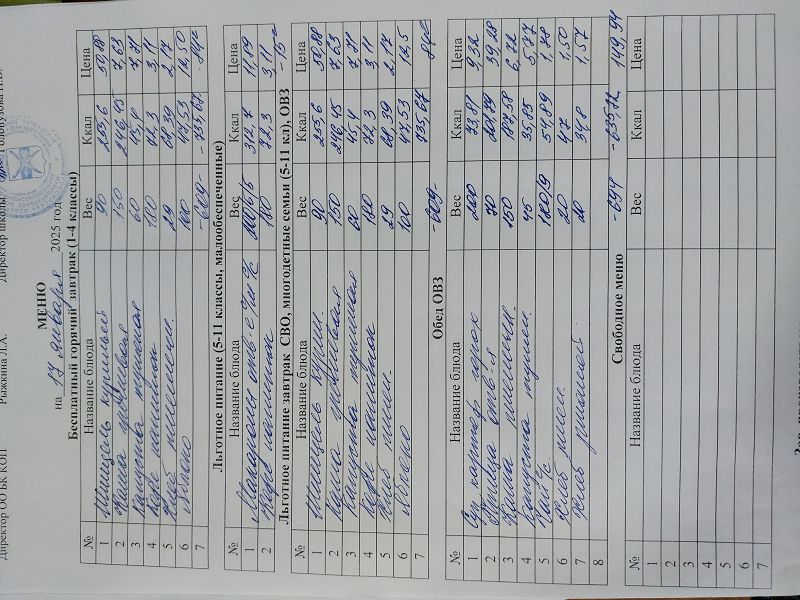 Директор ОО БК КОП Рыжкина Л.А. Директор школы
МЕНЮ
на 17 января 2025 год
Бесплатный горячий завтрак (1-4 классы)
№ Название блюда Вес Ккал Цена
1 Шницель куриный 90 253,6 50,88
2 Каша гречневая 150 246,45 7,63
3 Капуста тушеная 60 45,4 7,71
4 Кофе напиток 180 72,3 3,11
5 Хлеб пшеничн. 29 68,39 2,17
6 Яблоко 100 47,53 12,50
7 -609- -733,67
Льготное питание (5-11 классы, малообеспеченные)
№ Название блюда Вес Ккал Цена
1 Макароны отв. с 312,7 11,19
2 Кофе напиток 180 72,3 3,11
Льготное питание завтрак СВО, многодетные семьи (5-11 кл), ОВЗ
№ Название блюда Вес Ккал Цена
1 Шницель курин 90 253,6 50,88
2 Каша гречневая 150 246,45 7,63
3 Капуста тушеная 60 45,4 7,71
4 Кофе напиток 180 72,3 3,11
5 Хлеб пшен. 29 68,39 2,17
6 Яблоко 100 47,53 12,5
7 -609- 735,67
Обед ОВЗ
№ Название блюда Вес Ккал Цена
1 Суп картоф горох 200 73,81 9,32
2 Птица отв-я 70 39,28
3 Каша пшеничн. 150 187,58 6,72
4 Капуста тушен. 45 35,85 5,77
5 Чай 180/9 54,89 1,78
6 Хлеб пшен. 20 47 1,50
7 Хлеб ржаной. 20 34,8 1,57
8 -594 -635,72 149,94
Свободное меню
№ Название блюда Вес Ккал Цена
1
2
3
4
5
6
7